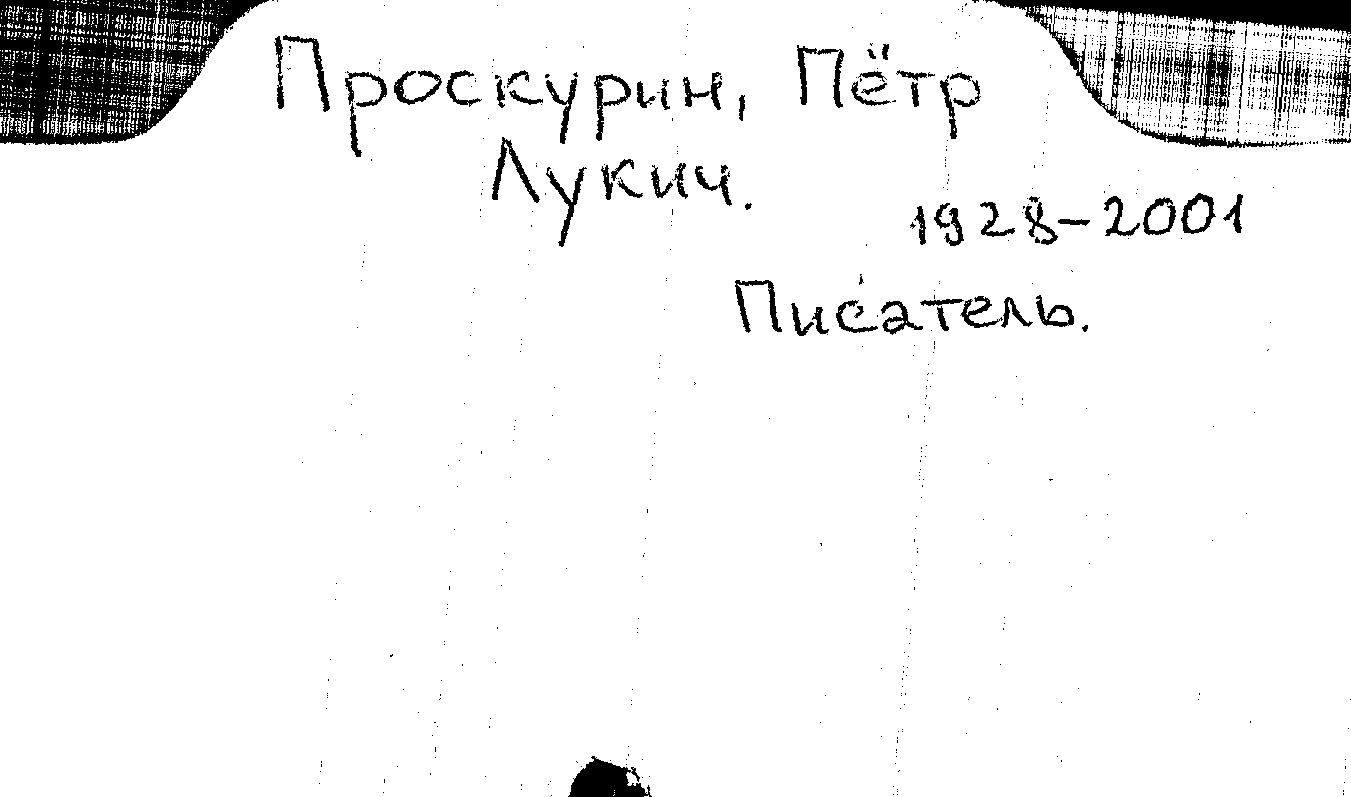 Проскурин, Пётр
Лукич.
1928-2001
Писатель.